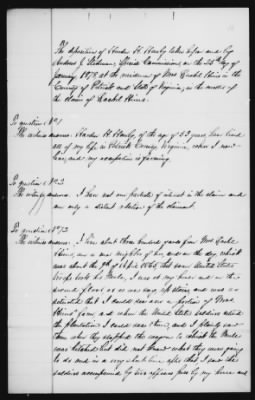 The deposition of Harden H. Handy taken before and by
Andrew J. Stedman, Special Commissioner, on the 25th day of
January 1878 at the residence of Mrs Rachel Shires in the
County of Patrick and State of Virginia, in the matter of
the claim of Rachel Shires.
To question No 1
The witness answers: Harden H. Handy, of the age of 53 years, have lived
all of my life in Patrick County Virginia, where I now
live, and my occupation is farming.
To question No 2
The witness answers: I have not one particle of interest in the claim and
am only a distant relation of the claimant.
To question No 73
The witness answers: I live about three hundred yards from Mrs Rachel
Shires, am a near neighbor of her, and on the day which
was about the 9th of April 1865, that some United States
troops took her Mule, I was at my house and on the
that I could see over a portion of Mrs
Shires' farm, and when the United States soldiers visited
the plantation I could see them, and I plainly saw
them when they stopped the wagon to which the Mule
was hitched but did not know what they were going
to do and in a very short time after that I saw the
soldiers accompanied by two officers pass by my house and